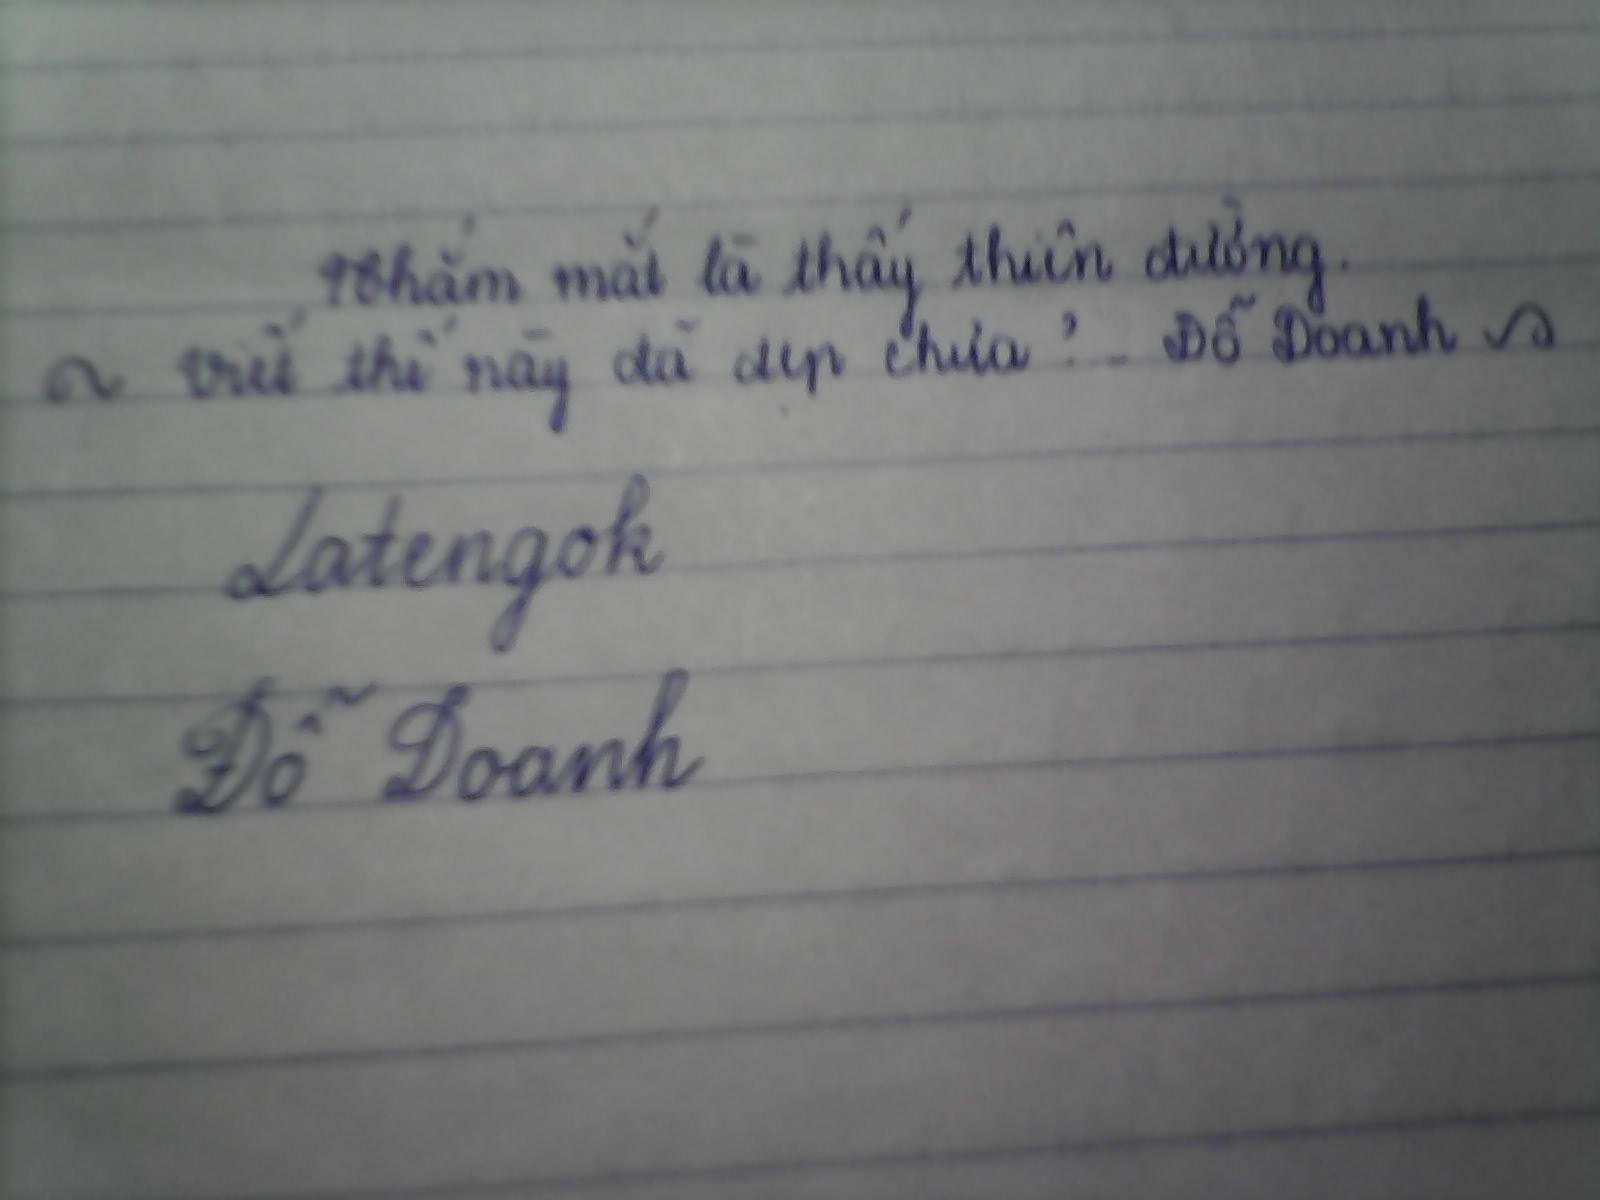 Nhắm mắt là thấy thiên đường.
~ viết thế này đã đẹp chưa ? - Đỗ Doanh ~
Latengok
Đỗ Doanh